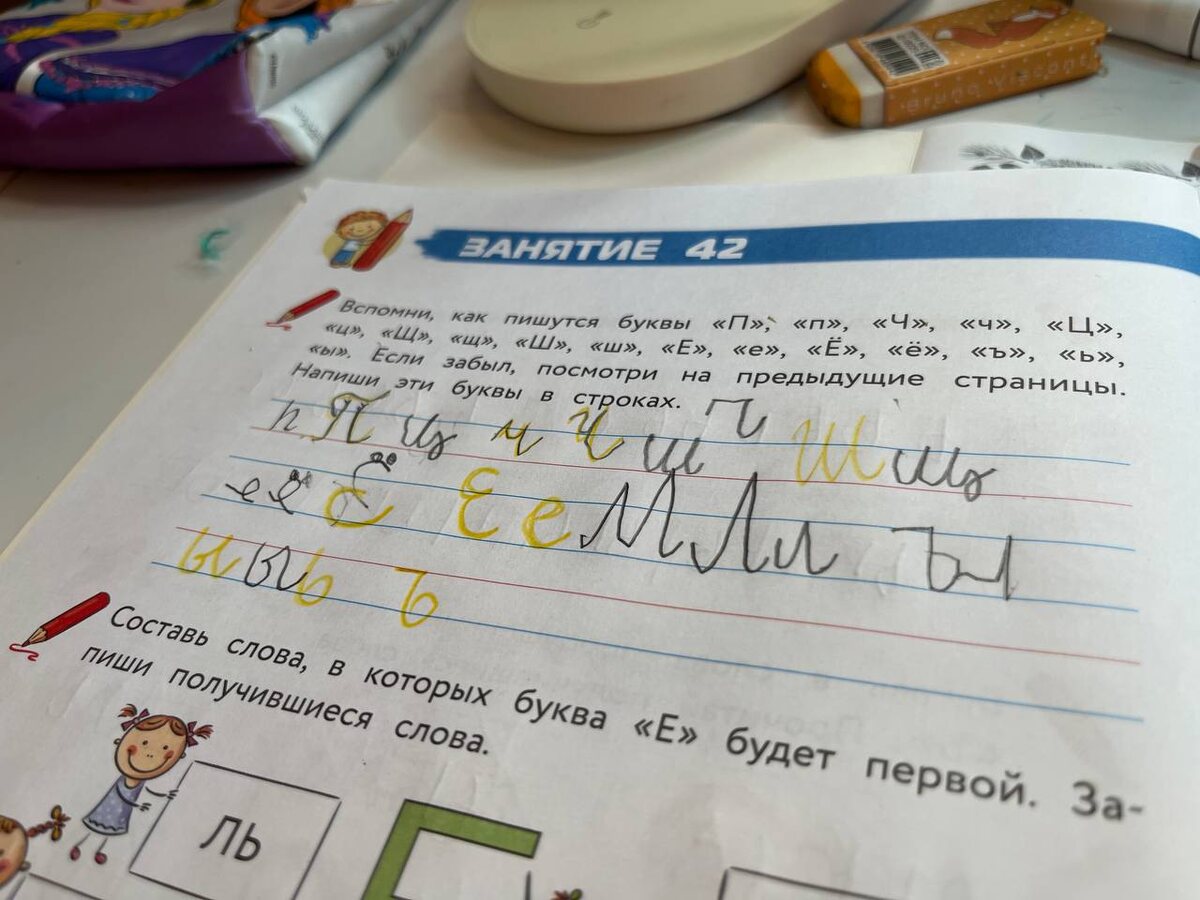 Bruno Visconti
ЗАНЯТИЕ 42
Вспомни, как пишутся буквы «П», «п», «Ч», «ч», «Ц»,
«ц», «Щ», «щ», «Ш», «ш», «Е», «е», «Ё», «ё», «ъ», «ь»,
«ы». Если забыл, посмотри на предыдущие страницы.
Напиши эти буквы в строках.
п П ц ч Ч ш Ц Ш щ
е ё Ё Е е М Л и Ъ
ы ы ь ъ
Составь слова, в которых буква «Е» будет первой. За-
пиши получившиеся слова.
ЛЬ
Е